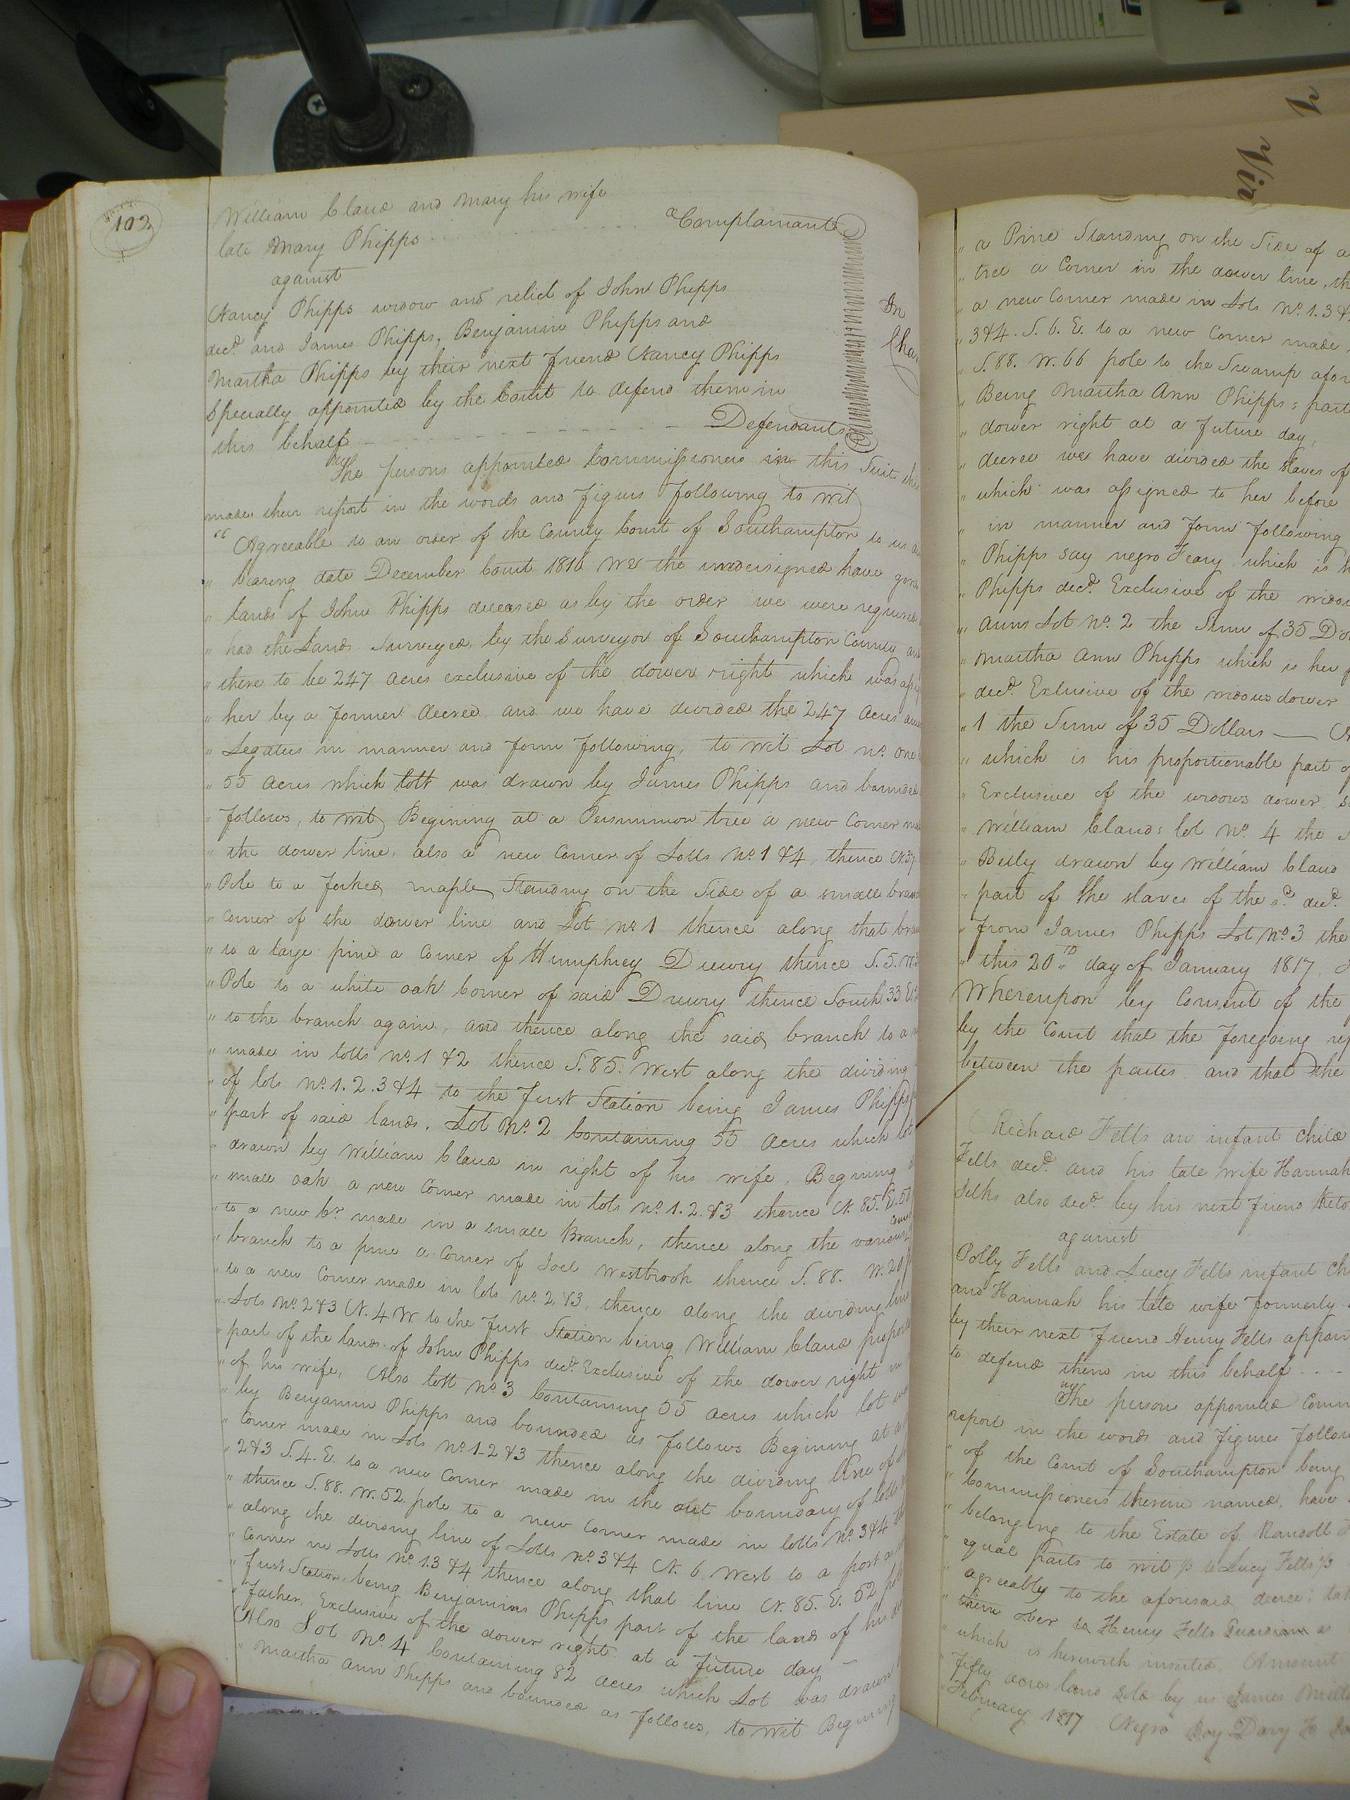 102
William Claud and Mary his wife
late Mary Phipps Complainants
against
Nancy Phipps widow and relict of John Phipps
decd. and James Phipps, Benjamin Phipps and
Martha Phipps by their next friend Nancy Phipps
Specially appointed by the Court to defend them in
this behalf Defendants
In
Chan
The persons appointed Commissioners in this Suit
made their report in the words and figures following to wit
" Agreeable to an order of the County Court of Southampton to us
" bearing date December Court 1816 We the undersigned have gone
" lands of John Phipps deceased as by the order we were required
" had the Lands surveyed by the Surveyor of Southampton County
" there to be 247 acres exclusive of the dower right which was
" her by a former decree and we have divided the 247 acres
" Legatees in manner and form following, to wit Lot no. one
" 55 acres which lott was drawn by James Phipps and bounded
" follows, to wit, Begining at a Persimmon tree a new Corner
" the dower line, also a new Corner of Lotts No. 1 &4, thence N.
" Pole to a forked maple Standing on the Side of a small
" Corner of the dower line and Lot no 1 thence along that
" to a large pine a Corner of Humphrey Drewry thence S. 5.
" Pole to a white oak Corner of said Drewry thence South 33
" to the branch again, and thence along the said branch to a
" made in lotts no. 1 &2 thence S. 85. West along the dividing
" of lots No. 1. 2. 3 &4 to the first Station being James Phipps
" part of said lands. Lot No. 2 Containing 55 acres which lot
" drawn by William Claud in right of his wife, Begining
" small oak a new Corner made in lots No. 1. 2. &3 thence N. 85. E. 50
" to a new Cr. made in a small Branch, thence along the various
" branch to a pine a Corner of Joel Westbrook thence S. 88. W. 20
" to a new Corner made in lots No. 2. &3, thence along the dividing line
" Lots No. 2 &3 N. 4 W to the first Station being William Claud
" part of the lands of John Phipps decd. Exclusive of the dower right
" of his wife, Also lott No. 3 Containing 55 acres which lot
" by Benjamin Phipps and bounded as follows Begining at
" Corner made in Lots No. 1-2 &3 thence along the dividing line of
" 2&3 S. 4. E. to a new Corner made in the out boundary of lotts
" thence S. 88. W. 52 pole to a new Corner made in lotts No. 3 &4
" along the dividing line of Lotts No. 3 &4 N. 6. West to a post
" Corner in Lotts No. 1 3 &4 thence along that line N. 85. E. 52
" first Station being Benjamins Phipps part of the lands of his
" Father, Exclusive of the dower right at a future day
" Also Lot No. 4 Containing 82 acres which Lot was drawn
" Martha Ann Phipps and bounded as follows, to wit Begining
" a Pine Standing on the Side of a
" tree a Corner in the dower line,
" a new Corner made in Lots No. 1. 3 &
" 3 &4. S. 6. E. to a new Corner made
" S. 88. W. 66 pole to the Swamp
" Being Martha Ann Phipps's part
" dower right at a future day,
" decree we have divided the slaves of
" which was assigned to her before
" in manner and form following
" Phipps say negro which is
" Phipps decd. Exclusive of the
" Anns Lot No. 2 the Sum of 35
" Martha Ann Phipps which is her
" decd. Exclusive of the widows dower
" 1 the Sum of 35 Dollars
" which is his proportionable part
" Exclusive of the widows dower
" William Clauds lot No. 4 the
" Betty drawn by William Claud
" part of the slaves of the sd. decd.
" from James Phipps Lot No. 3 the
" this 20th day of January 1817.
Whereupon by Consent of the
by the Court that the foregoing
between the parties and that the
Richard Felts an infant Child
Felts decd. and his late wife Hannah
also decd. by his next friend
against
Polly Felts and Lucy Felts infant
and Hannah his late wife formerly
by their next friend Henry Felts
to defend them in this behalf
The persons appointed
report in the words and figures
" of the Court of Southampton being
" Commissioners therein named, have
" belonging to the Estate of
" equal parts to wit to Lucy Felts
" agreeably to the aforesaid decree:
" them over to Henry Felts Guardian
" which is herewith inserted. Amount
" fifty acres land sold by us James
" February 1817 Negro boy Davy To